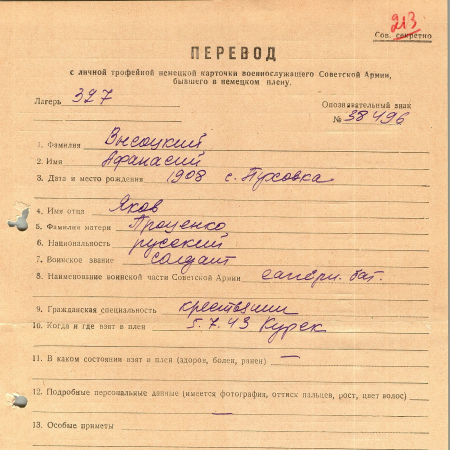 213
Сов. секретно
ПЕРЕВОД
с личной трофейной немецкой карточки военнослужащего Советской Армии,
бывшего в немецком плену.
Лагерь 327
Опознавательный знак
№ 38496
1. Фамилия Высоцкий
2. Имя Афанасий
3. Дата и место рождения 1908 с. Пусовка
4. Имя отца Яков
5. Фамилия матери Проценко
6. Национальность русский
7. Воинское звание солдат
8. Наименование воинской части Советской Армии саперн. бат.
9. Гражданская специальность крестьянин
10. Когда и где взят в плен 5.7.43 Курск
11. В каком состоянии взят в плен (здоров, болен, ранен) —
12. Подробные персональные данные (имеется фотография, оттиск пальцев, рост, цвет волос)
—
13. Особые приметы